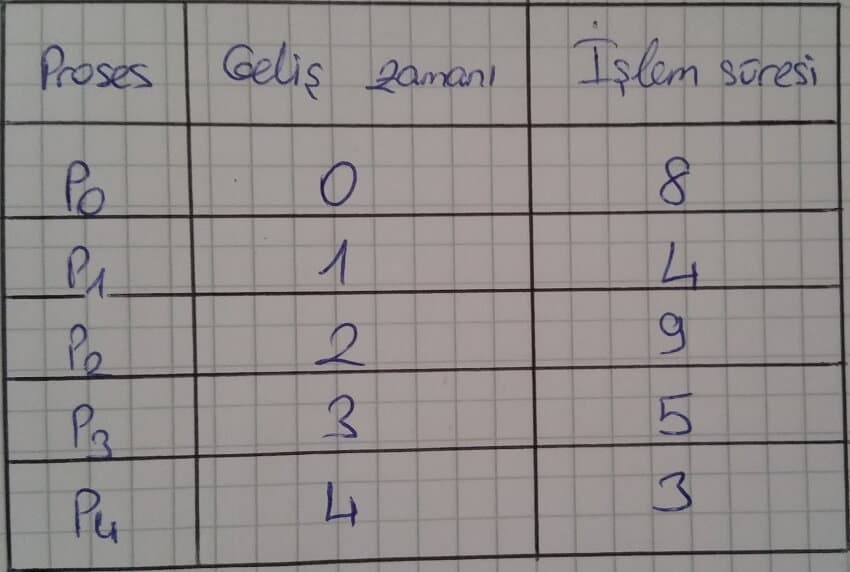 Proses Geliş zamanı İşlem süresi
P0 0 8
P1 1 4
P2 2 9
P3 3 5
P4 4 3